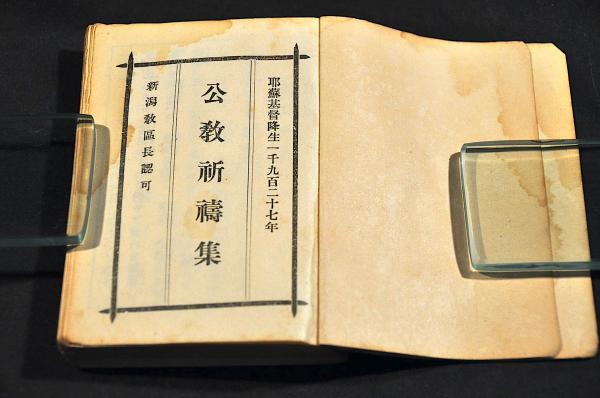 耶蘇基督降生一千九百二十七年
公教祈禱集
新潟教區長認可